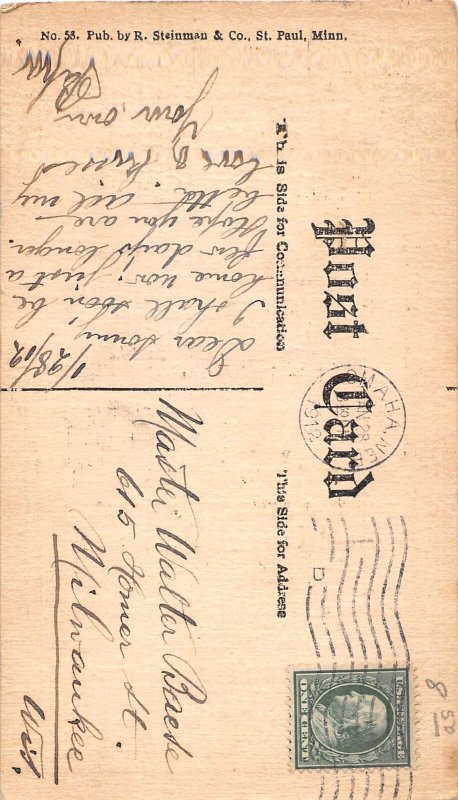 No. 53. Pub. by R. Steinman & Co., St. Paul, Minn.
Post Card
This Side for Communication
This Side for Address
OMAHA, NE
JAN 28
1912
D
UNITED STATES
ONE CENT
1/28/12
Dear Sonny;
I shall soon be
home now: just a
few days longer.
Hope you are
better. All my
love & kisses
Your own
Master Walter Baese
615 Homer St.
Milwaukee
Wis.
8 50